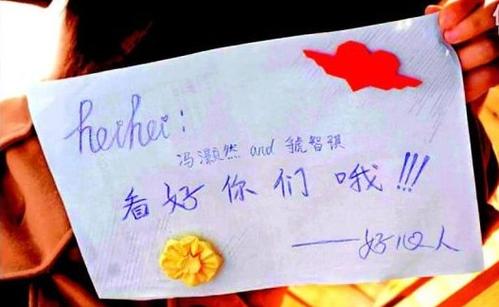 heihei：
冯灏然 and 虢智祺
看好你们哦!!!
——好心人